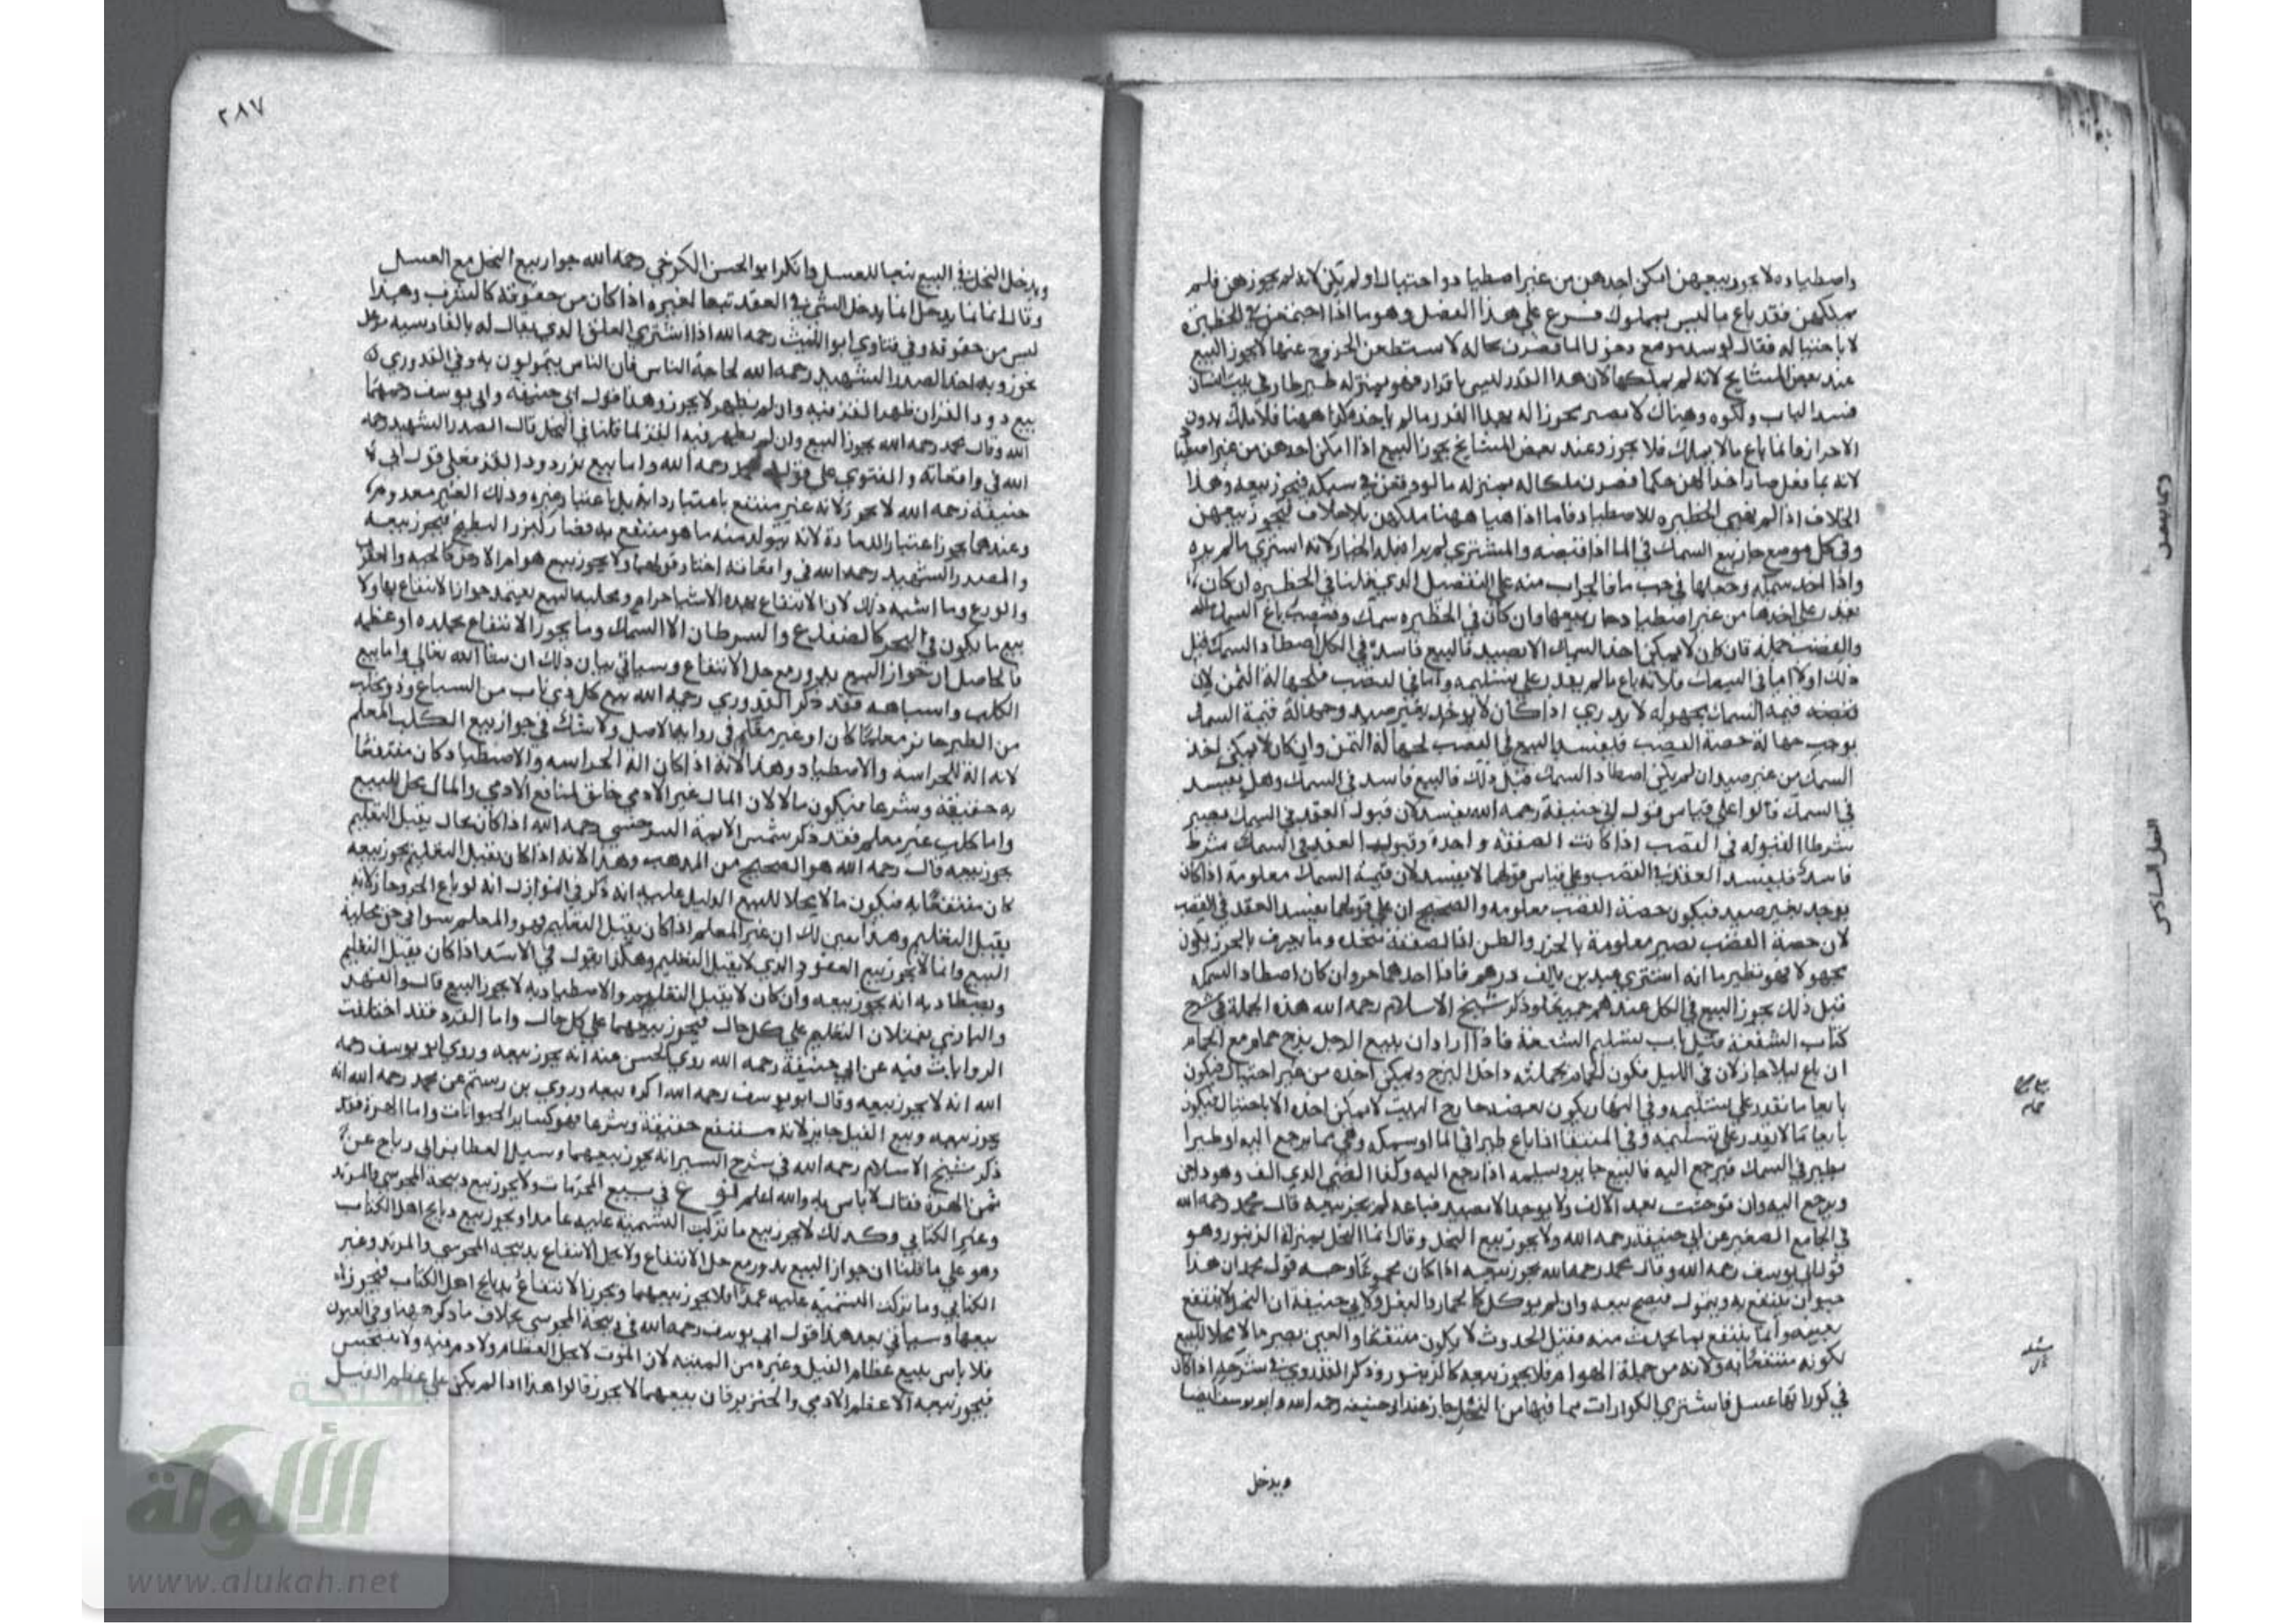 واصطياده لا يجوز بيعهن امكن اخذهن من غير اصطياد واحتيال او لم يكن لانه لم يحوزهن فلم
يملكهن فقد باع ما ليس بمملوك فرع على هذا الفصل وهو ما اذا اجتمعن في الحظيرة
لا باحتياله فقال لو سد موضع دخول الما فصرن بحاله لا يستطعن الخروج عنها لا يجوز البيع
عند بعض المشايخ لانه لم يملكها لان هذا القدر ليس باقرار فهو بمنزله طير طار في بيت انسان
فسد الباب ولكوه وهناك لا يصير محوزا له بهذا القدر ما لم ياخذه فكذا ههنا فلا ملك بدون
الاحراز وانما باع مالا يملك فلا يجوز وعند بعض المشايخ يجوز البيع اذا امكن اخذهن من غير اصطياد
لانه بما فعل صار اخذا لهن حكما فصرن ملكا له بمنزله ما لو وقعن في شبكه فيجوز بيعه وهذا
الخلاف اذا لم يهيئ الحظيره للاصطياد فاما اذا هيا ههنا ملكهن بلا خلاف فيجوز بيعهن
وفي كل موضع جاز بيع السمك في الما اذا قبضه والمشتري لم يرا فله الخيار لانه اشتري ما لم يره
واذا اخذ سمكه وجعلها في جب ما فالجواب منه على التفصيل الذي قلنا في الحظيره ان كان لا
يقدر على اخذها من غير اصطياد جاز بيعها وان كان في الحظيره سمك وقصب باع السمك
والقصب جملة فان كان لا يمكن اخذ السمك الا بصيد فالبيع فاسد في الكل اصطاد السمك قبل
ذلك او لا اما في السمك فلانه باع ما لم يقدر على تسليمه واما في القصب فلجهالة الثمن لان
قيمة السمك مجهوله لا يدري اذا كان لا يوخذ بغير صيد وجهالة قيمة السمك
يوجب جهالة حصة القصب فلفسد البيع في القصب لجهالة الثمن وان كان يمكن اخذ
السمك من غير صيد ان لم يكن اصطاد السمك قبل ذلك فالبيع فاسد في السمك وهل يفسد
في السمك قالوا على قياس قول ابي حنيفة رحمه الله يفسد لان قبول العقد في السمك يصير
شرطا لقبوله في القصب اذا كانت الصفقة واحدة وقبول العقد في السمك شرط
فاسد فيفسد العقد في القصب وعلى قياس قولهما لا يفسد لان قيمة السمك معلومة اذا كان
يوجد بغير صيد فيكون حصة القصب معلومه والصحيح ان على قولهما يفسد العقد في القصب
لان حصة القصب تصير معلومة بالحزر والظن اذا الصفقة تتحد وما يعرف بالحزر يكون
مجهولا فهو نظير ما انه اشتري عبدين بالف درهم فاذا احدهما حر وان كان اصطاد السمكه
قبل ذلك يجوز البيع في الكل عندهم جميعا وذكر شيخ الاسلام رحمه الله هذه الجملة في شرح
كتاب الشفعة قبل باب تسليم الشفعة فاذا اراد ان يبيع الرجل برج حمام مع الحمام
ان باع ليلا جاز لان في الليل يكون الحمام بجملته داخل البرج ويمكن اخذه من غير احتيال فيكون
بايعا ما يقدر على تسليمه وفي النهار يكون بعضه خارج البيت لا يمكن اخذه الا باحتيال فيكون
بايعا ما لا يقدر على تسليمه وفي المنتقا اذا باع طيرا في الما او سمكه وهي مما يرجع اليه او طيرا
يطير في السمك فيرجع اليه فالبيع جايز ويسلمه اذا رجع اليه وكذا الظبي الذي الف وهو داجن
ويرجع اليه وان توحشت بعد الالف ولا يوجد الا بصيد فباعه لم يجز بيعه قال محمد رحمه الله
في الجامع الصغير عن ابي حنيفة رحمه الله ولا يجوز بيع النحل وقال انما النحل بمنزلة الزنبور وهو
قول ابي يوسف رحمه الله وقال محمد رحمه الله يجوز بيعه اذا كان مجموعا وجه قول محمد ان هذا
حيوان ينتفع به ويتمول فيصح بيعه وان لم يوكل كالحمار والبغل ولابي حنيفة ان النحل لا ينتفع
بعينه وانما ينتفع بما يحدث منه فقبل الحدوث لا يكون منتفعا والعين يصير مالا محلا للبيع
لكونه منتفعا به ولانه من جملة الهوام فلا يجوز بيعه كالزنبور وذكر القدوري في شرحه اذا كان
في كوراتها عسل فاشتري الكوارات بما فيها من النحل جاز عند ابو حنيفه رحمه الله وابو يوسف ايضا
ويدخل
٢٨٧
ويدخل النحل في البيع تبعا للعسل وانكر ابو الحسن الكرخي رحمه الله جواز بيع النحل مع العسل
وقال انما يدخل الشئ في العقد تبعا لغيره اذا كان من حقوقه كالشرب وهذا
ليس من حقوقه وفي فتاوي ابو الليث رحمه الله اذا اشتري العلق الذي يقال له بالفارسيه
يجوز وبه اخذ الصدر الشهيد رحمه الله لحاجة الناس فان الناس يتمولون به وفي القدوري
بيع دود القز ان ظهر القز فيه وان لم يظهر لا يجوز وهذا قول ابي حنيفة وابي يوسف رحمهما
الله وقال محمد رحمه الله يجوز البيع وان لم يظهر فيه القز لما قلنا في النحل قال الصدر الشهيد رحمه
الله في واقعاته والفتوي على قول محمد رحمه الله واما بيع بزر دود القز فعلى قول ابي
حنيفة رحمه الله لا يجوز لانه غير منتفع باعتبار ذاته بل باعتبار غيره وذلك الغير معدوم
وعندهما يجوز اعتبارا للعادة لانه يتولد منه ما هو منتفع به فصار كبزر البطيخ فيجوز بيعه
والصدر الشهيد رحمه الله في واقعاته اختار قولهما ولا يجوز بيع هوام الارض كالحيه والعقرب
والوزع وما اشبه ذلك لان الانتفاع بهذه الاشيا حرام ومحلية البيع يعتمد جواز الانتفاع بها ولا
بيع ما يكون في البحر كالضفدع والسرطان الا السمك وما يجوز الانتفاع بجلده او عظمه
فالحاصل ان جواز البيع يدور مع حل الانتفاع وسياتي بيان ذلك ان شا الله تعالى واما بيع
الكلب واشباهه فقد ذكر القدوري رحمه الله بيع كل ذي ناب من السباع وذو مخلب
من الطير جايز معلما كان او غير معلم في رواية الاصل ولا شك في جواز بيع الكلب المعلم
لانه الة للحراسه والاصطياد وهذا لانه اذا كان الة الحراسه والاصطياد كان منتفعا
به حقيقة وشرعا فيكون مالا لان المال غير الادمي خلق لمنافع الادمي والمال محل للبيع
واما كلب غير معلم فقد ذكر شمس الايمة السرخسي رحمه الله اذا كان بحال يقبل التعليم
يجوز بيعه قال رحمه الله هو الصحيح من المذهب وهذا لانه اذا كان يقبل التعليم يجوز بيعه
كان منتفعا به فيكون مالا محلا للبيع الدليل عليه انه ذكر في النوازل انه لو باع الجرو جاز لانه
يقبل التعليم وهذا يبين لك ان غير المعلم اذا كان يقبل التعليم فهو والمعلم سوا في حق محلية
البيع وانما لا يجوز بيع العقور الذي لا يقبل التعليم وهكذا يقول في الاسد اذا كان يقبل التعليم
ويصطاد به انه يجوز بيعه وان كان لا يقبل التعليم والاصطياد به لا يجوز البيع قالوا الفهد
والبازي يقبلان التعليم على كل حال فيجوز بيعهما على كل حال واما القرد فقد اختلفت
الروايات فيه عن ابي حنيفة رحمه الله روي الحسن عنه انه يجوز بيعه وروي ابو يوسف رحمه
الله انه لا يجوز بيعه وقال ابو يوسف رحمه الله اكره بيعه وروي بن رستم عن محمد رحمه الله انه
يجوز بيعه وبيع الفيل جايز لانه منتفع حقيقة وشرعا فهو كساير الحيوانات واما الهرة فقد
ذكر شيخ الاسلام رحمه الله في شرح السير انه يجوز بيعهما وسيل العطا بن ابي رباح عن
ثمن الهرة فقال لا باس به والله اعلم نوع في بيع المحرمات ولا يجوز بيع ذبيحة المجوسي والمرتد
وغير الكتابي وكذلك لا يجوز بيع ما تركت التسمية عليه عامدا ويجوز بيع ذبايح اهل الكتاب
وهو على ما قلنا ان جواز البيع يدور مع حل الانتفاع ولا يحل الانتفاع بذبيحة المجوسي والمرتد وغير
الكتابي وما تركت التسمية عليه عمدا فلا يجوز بيعهما ويجوز الانتفاع بذبايح اهل الكتاب فيجوز
بيعها وسياتي بعد هذا قول ابي يوسف رحمه الله في ذبيحة المجوسي بخلاف ما ذكر ههنا وفي العيون
فلا باس ببيع عظام الفيل وغيره من الميتة لان الموت لا يحل العظام ولا دم فيه ولا يتنجس
فيجوز بيعه الا عظم الادمي والخنزير فان بيعهما لا يجوز قالوا هذا اذا لم يكن على عظم الفيل
الألوكة
www.alukah.net